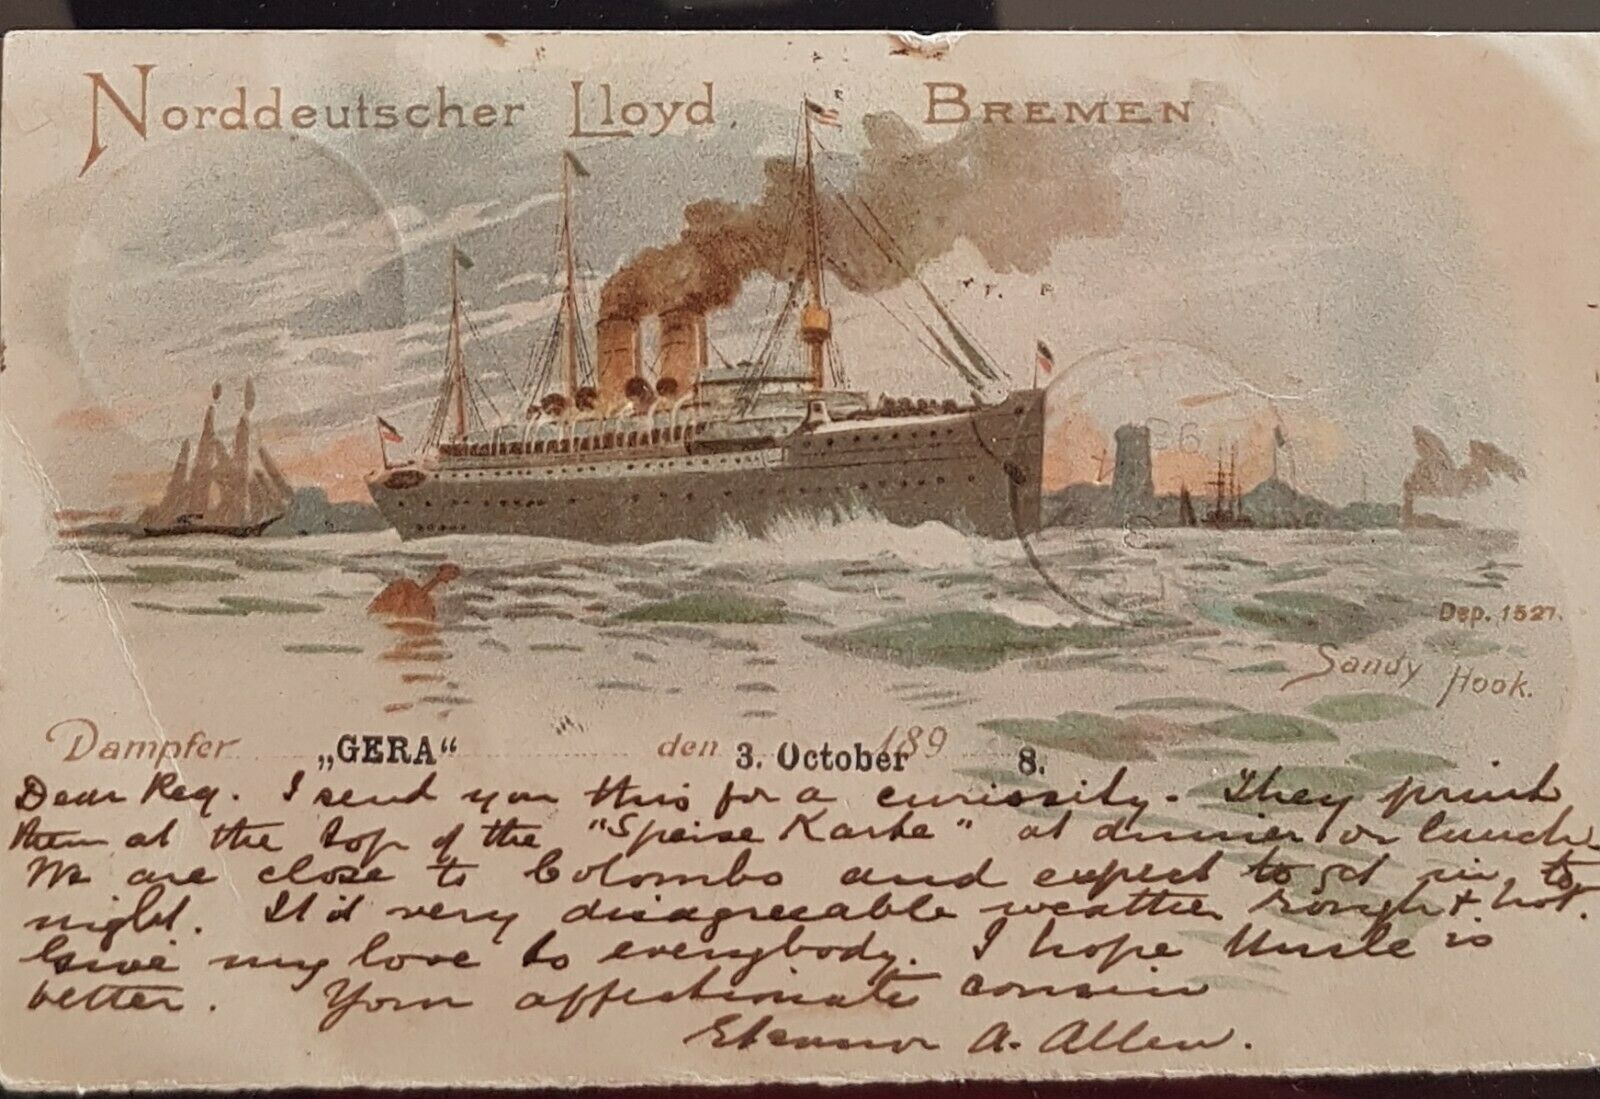 Norddeutscher Lloyd, Bremen.
Dep. 1527.
Sandy Hook.
Dampfer „GERA“ den 3. October 1898.
Dear Reg. I send you this for a curiosity. They print
them at the top of the "Speise Karte" at dinner or lunch.
We are close to Colombo and expect to get in to
night. It is very disagreeable weather rough & hot.
Give my love to everybody. I hope Uncle is
better. Your affectionate cousin
Eleanor A. Allen.